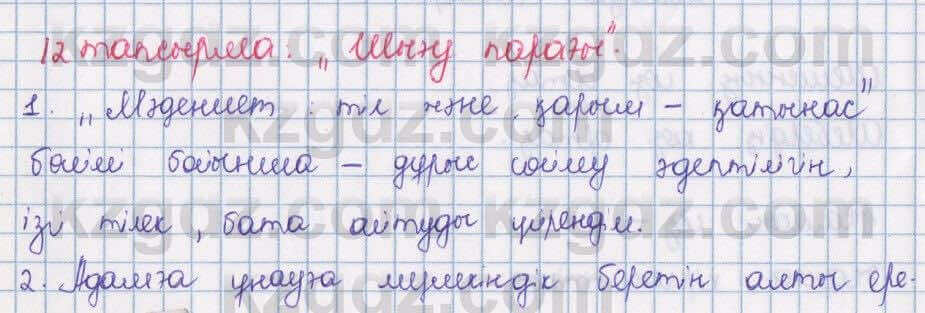 12 тапсырма: „Шығу парағы".
1. „Мәдениет: тіл және қарым - қатынас"
бөлімі бойынша - дұрыс сөйлеу әдептілігін,
ізгі тілек, бата айтуды үйрендім.
2. Адамға ұнауға мүмкіндік беретін алты ере-